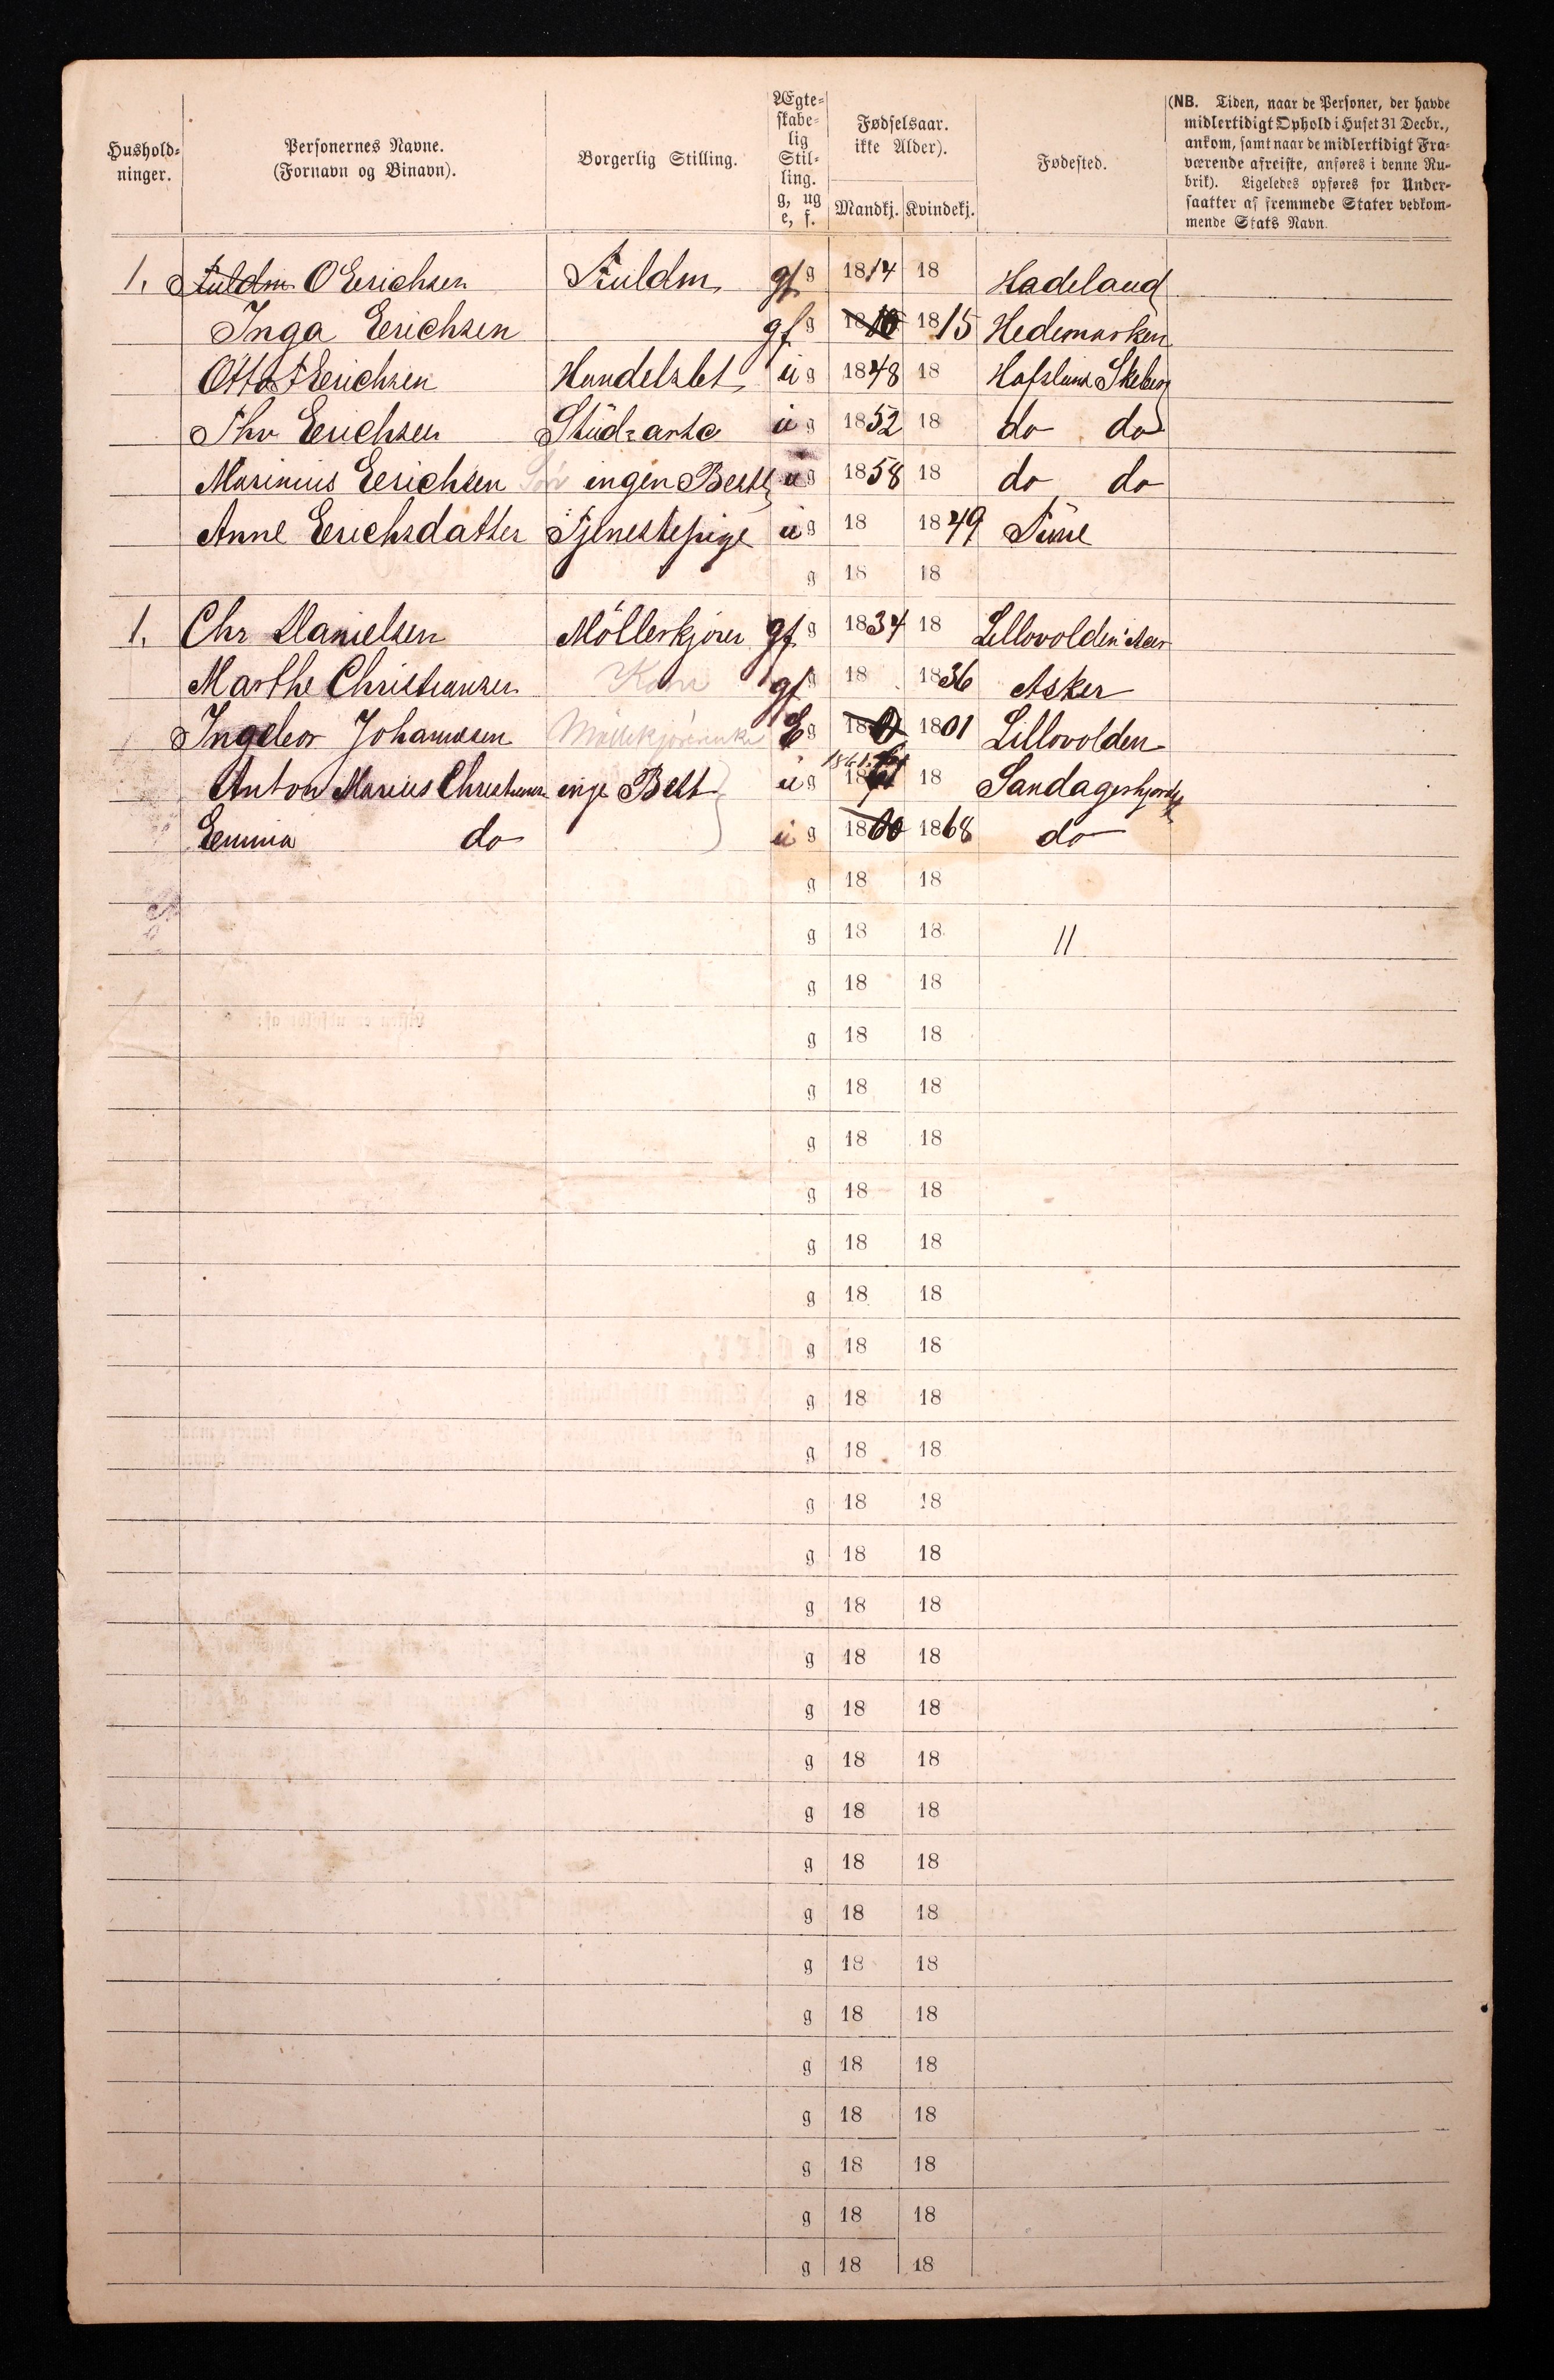 Hushold-
ninger.
Personernes Navne.
(Fornavn og Binavn).
Borgerlig Stilling.
Ægte-
skabe-
lig
Stil-
ling.
g, ug
e, f.
Fødselsaar.
ikke Alder).
Mandkj. Kvindekj.
Fødested.
(NB. Tiden, naar de Personer, der havde
midlertidigt Ophold i Huset 31 Decbr.,
ankom, samt naar de midlertidigt Fra-
værende afreiste, anføres i denne Ru-
brik). Ligeledes opføres for Under-
saatter af fremmede Stater vedkom-
mende Stats Navn.
1. Fuldm O Erichsen Fuldm gf g 1814 18 Hadeland
Inga Erichsen gf g 18 1815 Hedemarken
Otto Erichsen Handelsbet u g 1848 18 Hafslund Skeberg
Thv Erichsen Stud. u g 1852 18 do do
Marinius Erichsen Søn ingen Besk u g 1858 18 do do
Anne Erichsdatter Tjenestepige u g 18 1849 Tune
g 18 18
1. Chr Danielsen Möllerkjører gf g 1834 18 Lillovolden Aker
Marthe Christiansen Kone gf g 18 1836 Asker
Ingebor Johannsen E g 18 1801 Lillovolden
Anton Marius inge Besk u g 1861 18
Emma do u g 18 1868 do
g 18 18
g 18 18 "
g 18 18
g 18 18
g 18 18
g 18 18
g 18 18
g 18 18
g 18 18
g 18 18
g 18 18
g 18 18
g 18 18
g 18 18
g 18 18
g 18 18
g 18 18
g 18 18
g 18 18
g 18 18
g 18 18
g 18 18
g 18 18
g 18 18
g 18 18
g 18 18
g 18 18
g 18 18